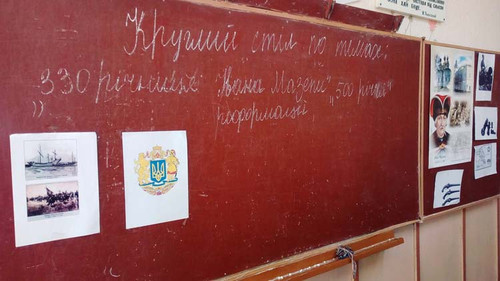 Круглий стіл по темах:
330 річниця „Івана Мазепи" „500 річниця
реформації,